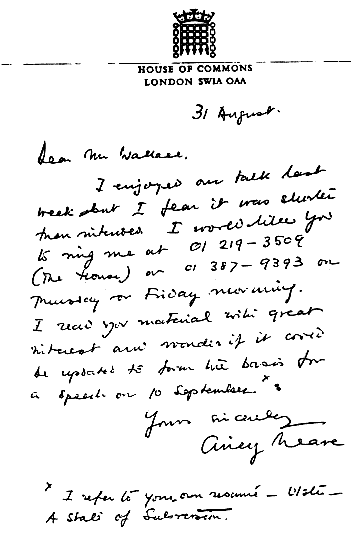 HOUSE OF COMMONS
LONDON SW1A 0AA
31 August.
Dear Mr Wallace,
I enjoyed our talk last
week but I fear it was shorter
than intended. I would like you
to ring me at 01 219-3509
(The House) or 01 387-9393 on
Thursday or Friday morning.
I read your material with great
interest and wonder if it could
be updated to form the basis for
a speech on 10 September. x
Yours sincerely
Airey Neave
x I refer to your own resumé - Ulster -
A State of Subversion.